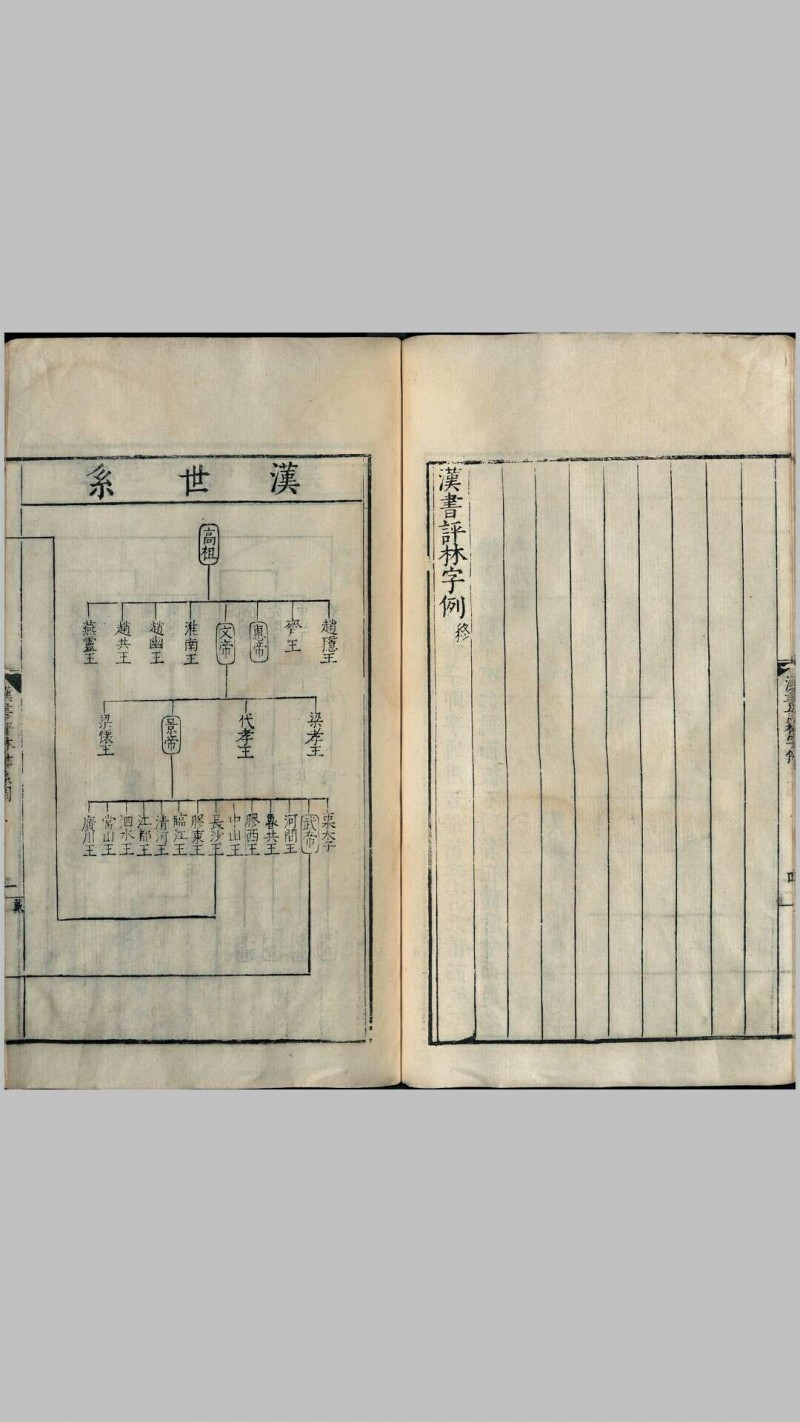 漢書評林字例終
漢世系
高祖
趙隱王
齊王
惠帝
文帝
淮南王
趙幽王
趙共王
燕靈王
梁孝王
代孝王
景帝
梁懷王
栗太子
武帝
河間王
魯共王
膠西王
中山王
長沙王
膠東王
臨江王
清河王
江都王
泗水王
常山王
廣川王